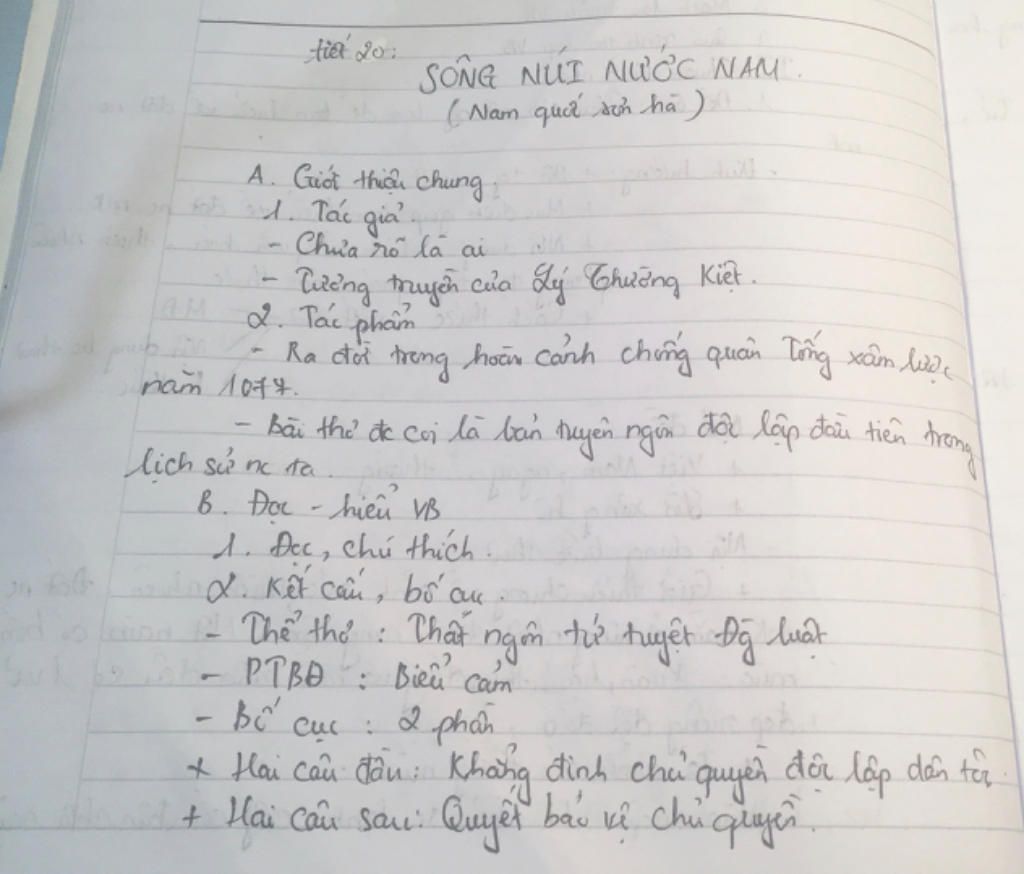 tiết 20:
SÔNG NÚI NƯỚC NAM.
(Nam quốc sơn hà)
A. Giới thiệu chung
1. Tác giả
- Chưa rõ là ai
- Tương truyền của Lý Thường Kiệt.
2. Tác phẩm
- Ra đời trong hoàn cảnh chống quân Tống xâm lược
năm 1077.
- Bài thơ đc coi là bản tuyên ngôn độc lập đầu tiên trong
lịch sử nc ta.
B. Đọc - hiểu VB
1. Đọc, chú thích.
2. Kết cấu, bố cục
- Thể thơ: Thất ngôn tứ tuyệt Đg luật
- PTBĐ: Biểu cảm
- Bố cục: 2 phần
+ Hai câu đầu: Khẳng định chủ quyền độc lập dân tộc.
+ Hai câu sau: Quyết bảo vệ chủ quyền.